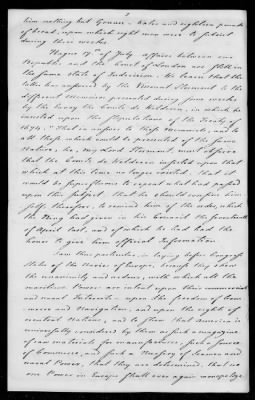 him nothing but Gruau. Water and eighteen pounds
of bread, upon which eight men were to subsist
during three weeks.
Hague 17th of July. Affairs between our
Republic and the Court of London are still in
the same State of Indecision. We learn that the
latter has answered by the Viscount Stormont to the
different Memoires presented during some weeks
by the Envoy the Comte de Welderen, in which he
insisted upon the Stipulations of the Treaty of
1674. "That in answer to those Memorials, and to
all those which could be presented of the same
Nature, he, my Lord Stormont, must observe
that the Comte de Welderen insisted upon that
which at this time no longer existed. that it
would be superfluous to repeat what had passed
upon this subject. that he should confine him
self, therefore, to remind him of the order, which
the King had given in his Council the seventeenth
of April last, and of which he had had the
honor to give him official Information
I am thus particular, in laying before Congress
the State of the Powers of Europe, because they show
the unanimity and ardour, with which all the
maritime Powers are intent upon their commercial
and naval Interests - upon the freedom of Com-
merce and Navigation, and upon the rights of
neutral Nations, and to show that America is
universally considered by them as such a magazine
of raw materials for manufactures, such a source
of Commerce, and such a Nursery of Seamen and
naval Power, that they are determined, that no
one Power in Europe shall ever again monopolize